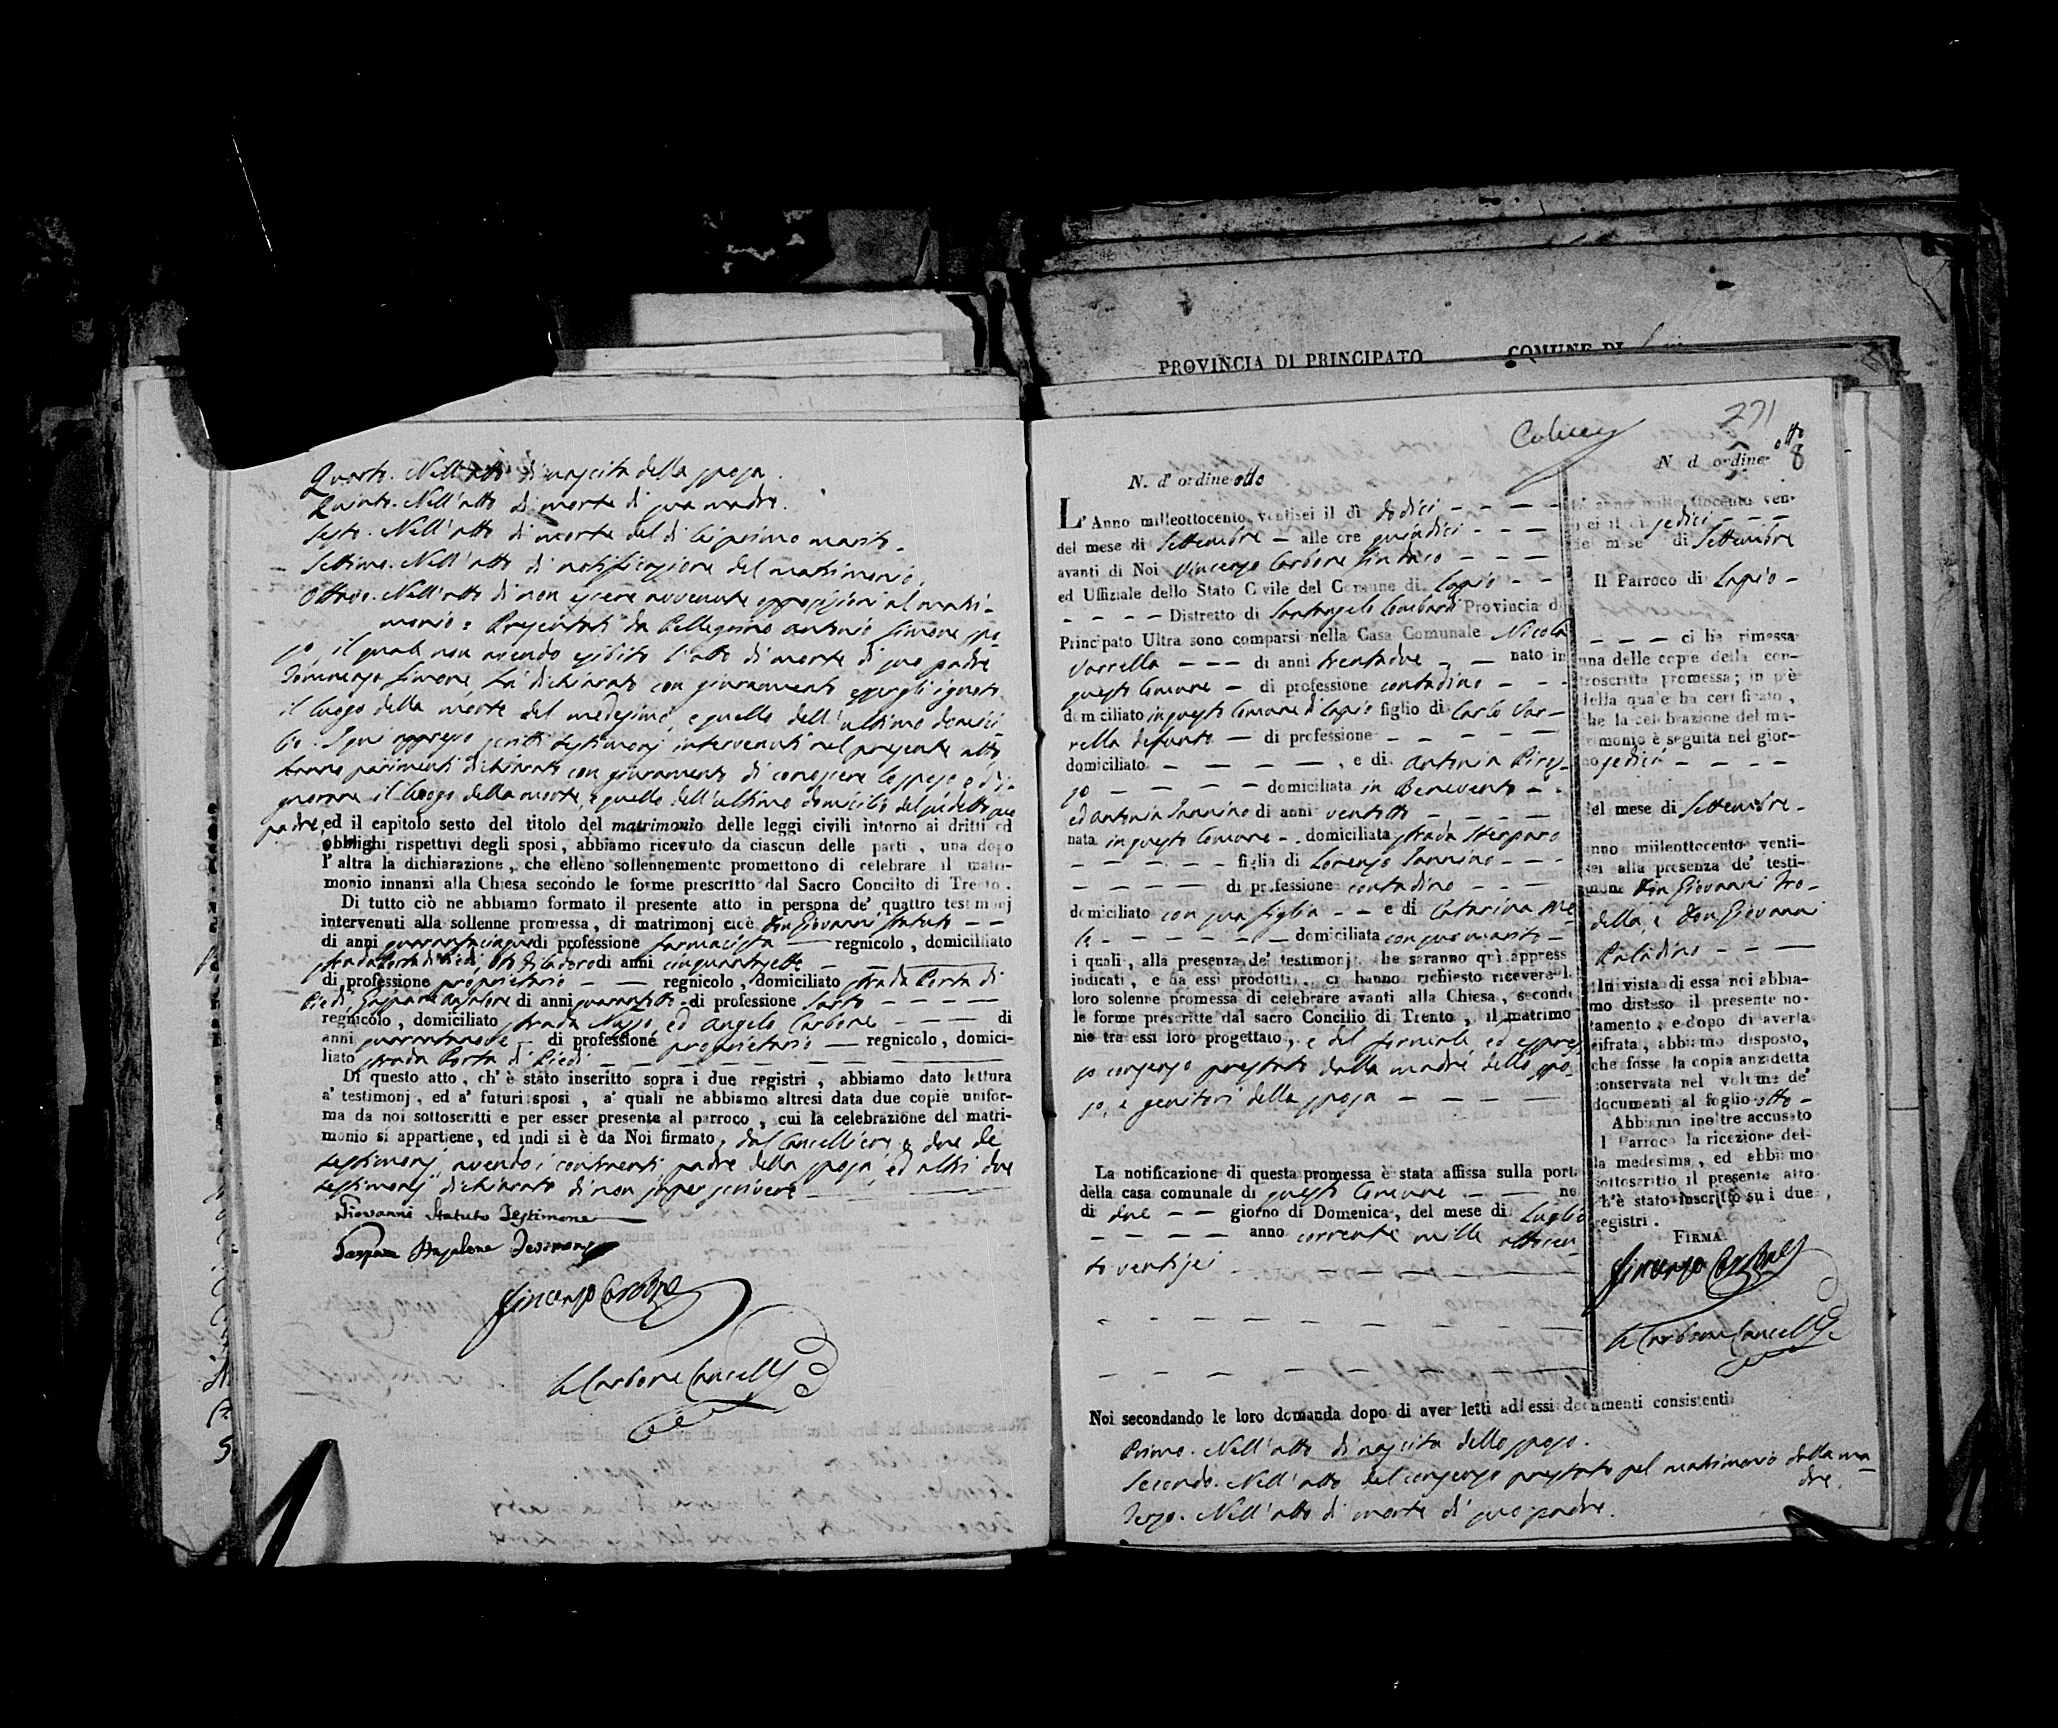 Quarto. Nell'atto di nascita della sposa.
Quinto. Nell'atto di morte di sua madre.
Sesto. Nell'atto di morte del di lei primo marito.
Settimo. Nell'atto di notificazione del matrimonio.
Ottavo. Nell'atto di non essere avvenute opposizioni al matri-
monio: Presentati da Pellegrino Antonio Simone spo-
so il quale non avendo esibito l'atto di morte di suo padre
Domenico Simone ha dichiarato con giuramento essergli ignoto
il luogo della morte del medesimo, e quello dell'ultimo domici-
lio. I qui appresso scritti testimonj intervenuti nel presente atto
hanno parimenti dichiarato con giuramento di conoscere lo sposo e d'i-
gnorare il luogo della morte, e quello dell'ultimo domicilio del suddetto suo
padre, ed il capitolo sesto del titolo del matrimonio delle leggi civili intorno ai dritti ed
obblighi rispettivi degli sposi, abbiamo ricevuto da ciascun delle parti, una dopo
l'altra la dichiarazione, che elleno sollennemente promettono di celebrare il matri-
monio innanzi alla Chiesa secondo le forme prescritto dal Sacro Concilto di Trento.
Di tutto ciò ne abbiamo formato il presente atto in persona de' quattro testimonj
intervenuti alla sollenne promessa, di matrimonj cioè Don Giovanni Statuto — —
di anni quarantacinque di professione farmacista — regnicolo, domiciliato
strada Porta di Piedi, di anni cinquantasette — —
di professione proprietario — — regnicolo, domiciliato strada Porta di
Piedi, Gaspare di anni quarantotto di professione Sarto — — — —
regnicolo, domiciliato strada ed Angelo Carbone — — — di
anni — di professione proprietario — regnicolo, domici-
liato strada Porta di Piedi — — — — —
Di questo atto, ch'è stato inscritto sopra i due registri, abbiamo dato lettura
a' testimonj, ed a' futuri sposi, a' quali ne abbiamo altresì data due copie unifor-
ma da noi sottoscritti e per esser presente al parroco, cui la celebrazione del matri-
monio si appartiene, ed indi si è da Noi firmato, dal Cancelliere e due de
testimonj, avendo i contraenti, padre della sposa, ed altri due
testimonj dichiarato di non saper scrivere
Giovanni Statuto Testimone
Testimonj
Vincenzo Carbone
Carbone Cancell
PROVINCIA DI PRINCIPATO COMUNE DI
271
N. d'ordine otto
L'Anno milleottocento ventisei il dì dodici — — — —
del mese di Settembre — alle ore quindici — — —
avanti di Noi Vincenzo Carbone Sindaco — — —
ed Uffiziale dello Stato Civile del Comune di Lapio — —
— — — — Distretto di Santangelo Lombardi Provincia di
Principato Ultra sono comparsi nella Casa Comunale Nicola
Varrella — — — di anni trentadue — — nato in
questo Comune — di professione contadino — — —
domiciliato in questo Comune di Lapio figlio di Carlo Var-
rella defunto — di professione — — — — —
domiciliato — — — —, e di Antonia
— — — — domiciliata in Benevento — —
ed Antonia Iannino di anni ventotto — — — —
nata in questo Comune — domiciliata strada
— — — — — figlia di Lorenzo Iannino — — —
— — — — — di professione contadino — — —
domiciliato con sua figlia — — e di Catarina Me-
le — — — — — — domiciliata con suo marito —
i quali, alla presenza de' testimonj, che saranno quì appress
indicati, e da essi prodotti, ci hanno richiesto ricevere la
loro solenne promessa di celebrare avanti alla Chiesa, secondo
le forme prescritte dal sacro Concilio di Trento, il matrimo
nio tra essi loro progettato, e del formale ed espres-
so consenso prestato dalla madre dello spo-
so, e genitori della sposa — — — —
La notificazione di questa promessa è stata affissa sulla port
della casa comunale di questo Comune — — ne
di due — — giorno di Domenica, del mese di Luglio
— — — — anno corrente mille ottocen-
to ventisei — — — —
Noi secondando le loro domanda dopo di aver letti ad essi documenti consistenti
Primo. Nell'atto di nascita dello sposo.
Secondo. Nell'atto del consenso prestato pel matrimonio dalla ma-
dre.
Terzo. Nell'atto di morte di suo padre.
N d'ordine otto
8
anno milleottocento ven-
sei il dì sedici — — —
e mese di Settembre
Il Parroco di Lapio —
— — — ci ha rimessa
una delle copie della con-
troscritta promessa; in piè
della quale ha certificato,
che la celebrazione del ma-
trimonio è seguita nel gior-
no sedici — — — —
del mese di Settembre —
anno milleottocento venti-
sei alla presenza de' testi-
mone Don Giovanni Tro-
della, e Don Giovanni
Paladino — — —
In vista di essa noi abbia-
mo disteso il presente no-
tamento, e dopo di averla
cifrata, abbiamo disposto,
che fosse la copia anzidetta
conservata nel volume de'
documenti al foglio otto —
Abbiamo inoltre accusato
l Parroco la ricezione del-
la medesima, ed abbiamo
sottoscritto il presente atto
ch'è stato inscritto su i due
registri.
FIRMA
Vincenzo Carbone
Carbone Cancell